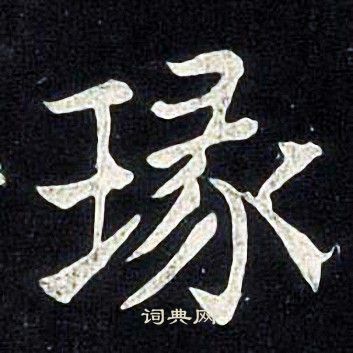 瑑
词典网